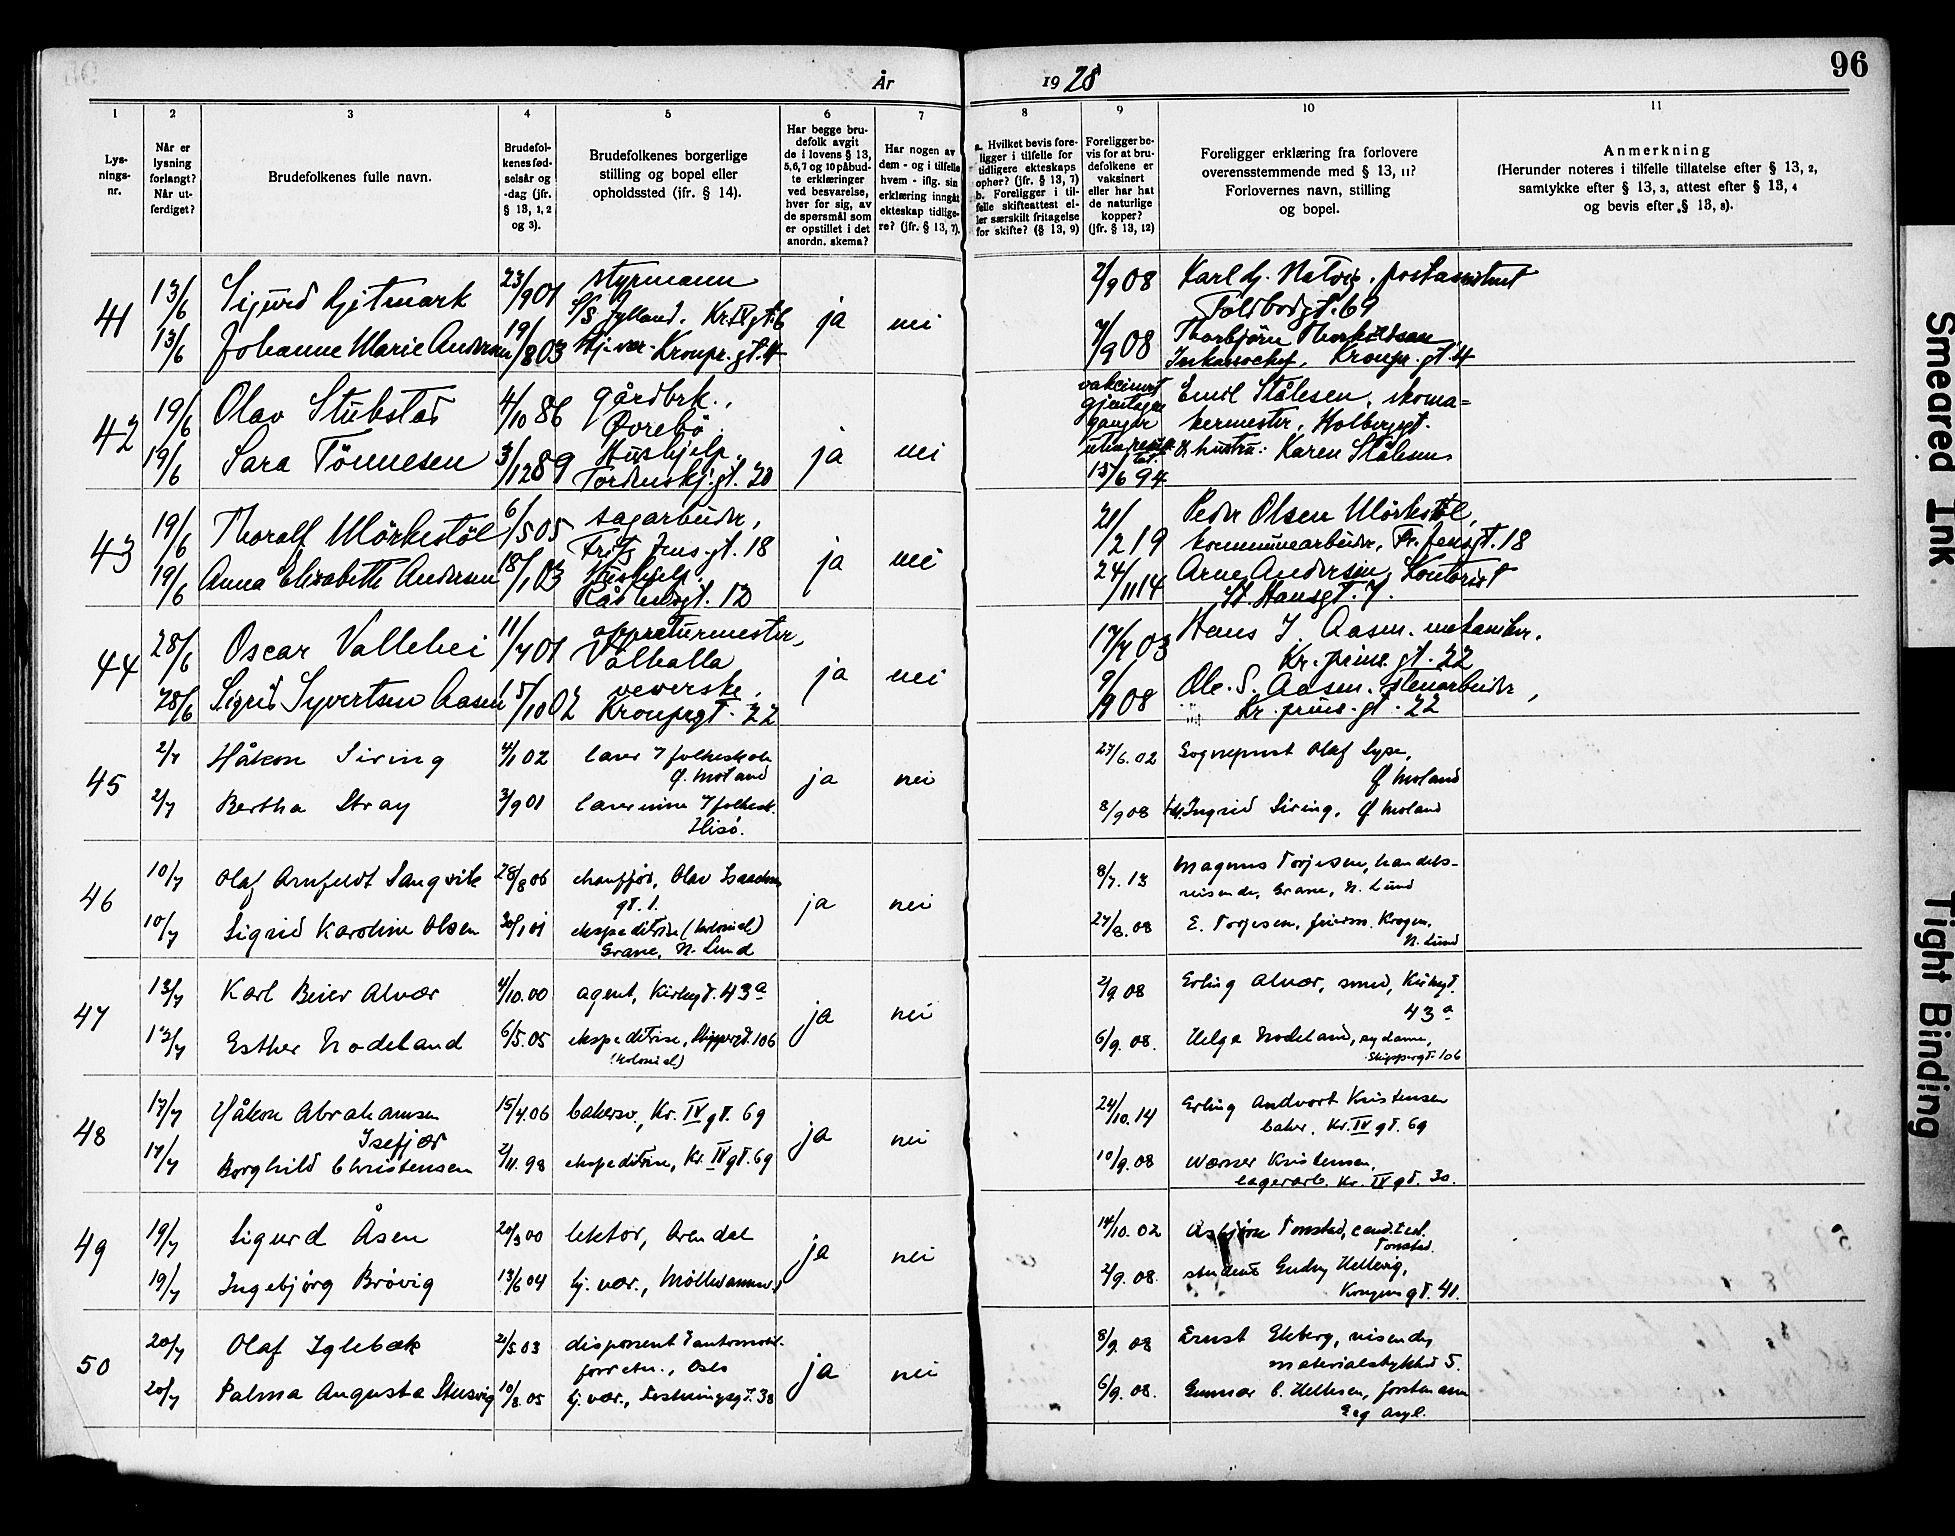 År 1928
96
1 2 3 4 5 6 7 8 9 10 11
Lys-
nings-
nr.
Når er
lysning
forlangt?
Når ut-
ferdiget?
Brudefolkenes fulle navn.
Brudefol-
kenes fød-
selsår og
-dag (jfr.
§ 13, 1, 2
og 3).
Brudefolkenes borgerlige
stilling og bopel eller
opholdssted (jfr. § 14).
Har begge bru-
defolk avgit
de i lovens § 13,
5,6,7 og 10 påbud-
te erklæringer
ved besvarelse,
hver for sig, av
de spørsmål som
er opstillet i det
anordn. skema?
Har nogen av
dem - og i tilfelle
hvem - iflg. sin
erklæring inngått
ekteskap tidlige-
re? (jfr. § 13, 7).
a. Hvilket bevis fore-
ligger i tilfelle for
tidligere ekteskaps
ophør? (jfr. § 13, 7)
b. Foreligger i til-
felle skifteattest el-
ler særskilt fritagelse
for skifte? (§ 13, 9)
Foreligger be-
vis for at bru-
defolkene er
vaksinert
eller har hat
de naturlige
kopper?
(jfr. § 13, 12)
Foreligger erklæring fra forlovere
overensstemmende med § 13, 11?
Forlovernes navn, stilling
og bopel.
Anmerkning
(Herunder noteres i tilfelle tillatelse efter § 13, 2,
samtykke efter § 13, 3, attest efter § 13, 4
og bevis efter § 13, 8).
41 13/6 Sigurd Gjitmark 23/9 01 styrmann
S/S Jylland. Kr. IV gt. 6 ja nei 2/9 08 Karl Gj. Natvig, postassistent
Toldbodgt. 69
13/6 Johanne Marie Andersen 19/8 03 Hj. vær. Kronpr. gt. 4 7/9 08 Thorbjörn Thorkildsen,
Inkassochef, Kronpr. gt. 4
42 19/6 Olav Stubstad 4/10 86 gårdbrk.,
Øvrebö. ja nei vaksinert
gjentagne
ganger
uten resul-
tat. Emil Stålesen, skoma=
kermester, Holbergsgt.
19/6 Sara Tönnesen 3/12 89 Hushjelp.
Tordenskj. gt. 20 15/6 94 & hustru: Karen Stålesen
43 19/6 Thoralf Mörkestöl 6/5 05 sagarbeider,
Fritz Jens. gt. 18 ja nei 21/2 19 Peder Olsen Mörkestöl,
kommunearbeider, Fr. Jensgt. 18
19/6 Anna Elisabeth Andersen 18/1 03 Hushjelp.
Rådhusgt. 12 24/11 14 Arne Andersen, Kontorist
St. Hansgt. 7.
44 28/6 Oscar Vallehei 11/7 01 appreturmester,
Valhalla ja nei 17/7 03 Hans J. Aasen. mekaniker.
Kr. prins. gt. 22
28/6 Sigrid Syvertsen Aasen 15/10 02 veverske.
Kronprgt. 22 9/9 08 Ole. S. Aasen. stenarbeider,
Kr. prins. gt. 22
45 2/7 Håkon Siring 4/1 02 lærer i folkeskole
Ø. Moland ja nei 27/6. 02 Sogneprest Olaf Lyse,
Ø Moland
2/7 Bertha Stray 3/9 01 lærerinne i folkesk.
Hisö. 8/9 08 frk. Ingrid Siring, Ø Moland
46 10/7 Olaf Arnfeldt Langvik 28/8 06 chauffør, Olav Isaachsens
gt. 1. ja nei 8/7. 13 Magnus Torjesen, handels-
reisende, Grane, N. Lund
10/7 Sigrid Karoline Olsen 30/1 01 ekspeditrise (kolonial)
Grane, N. Lund 27/8. 08 E. Torjesen, Krogen,
N. Lund
47 13/7 Karl Beier Alvær 4/10.00 agent, Kirkegt. 43 a ja nei 2/9 08 Erling Alvær, smed, Kirkegt.
43 a
13/7 Esther Nodeland 6/5. 05 ekspeditrise, Skippergt. 106
(kolonial) 6/9. 08. Helga Nodeland, sydame,
Skippergt. 106
48 17/7 Håkon Abrahamsen
Isefjær 15/4. 06 bakersv., Kr. IV gt. 69 ja nei 24/10. 14 Erling Andvort Kristensen
baker, Kr. IV gt. 69
17/7 Borghild Christensen 2/11. 98 ekspeditrise, Kr. IV gt. 69 10/9. 08 Werner Kristensen,
lagerarb. Kr. IV gt. 30.
49 19/7 Sigurd Åsen 20/3 00 lektor, Arendal ja nei 14/10. 02 Asbjörn Tonstad, cand. teol.
Tonstad.
19/7 Ingebjörg Brövig 13/6 04 hj. vær., Möllevannsv. 2/9. 08. student Gudny Hellevig,
Kongensgt. 41.
50 20/7 Olaf Iglebæk 21/5. 03 disponent i automobil-
forretn., Oslo ja nei 8/9. 08 Ernst Ekberg, reisende,
materialstykket 5.
20/7 Palma Augusta Stusvig 10/8. 05 hj. vær., Festningsgt. 38 6/9. 08. Gunnar C. Hellesen, forstmann
Eeg Asyl.
Smeared Ink
Tight Binding